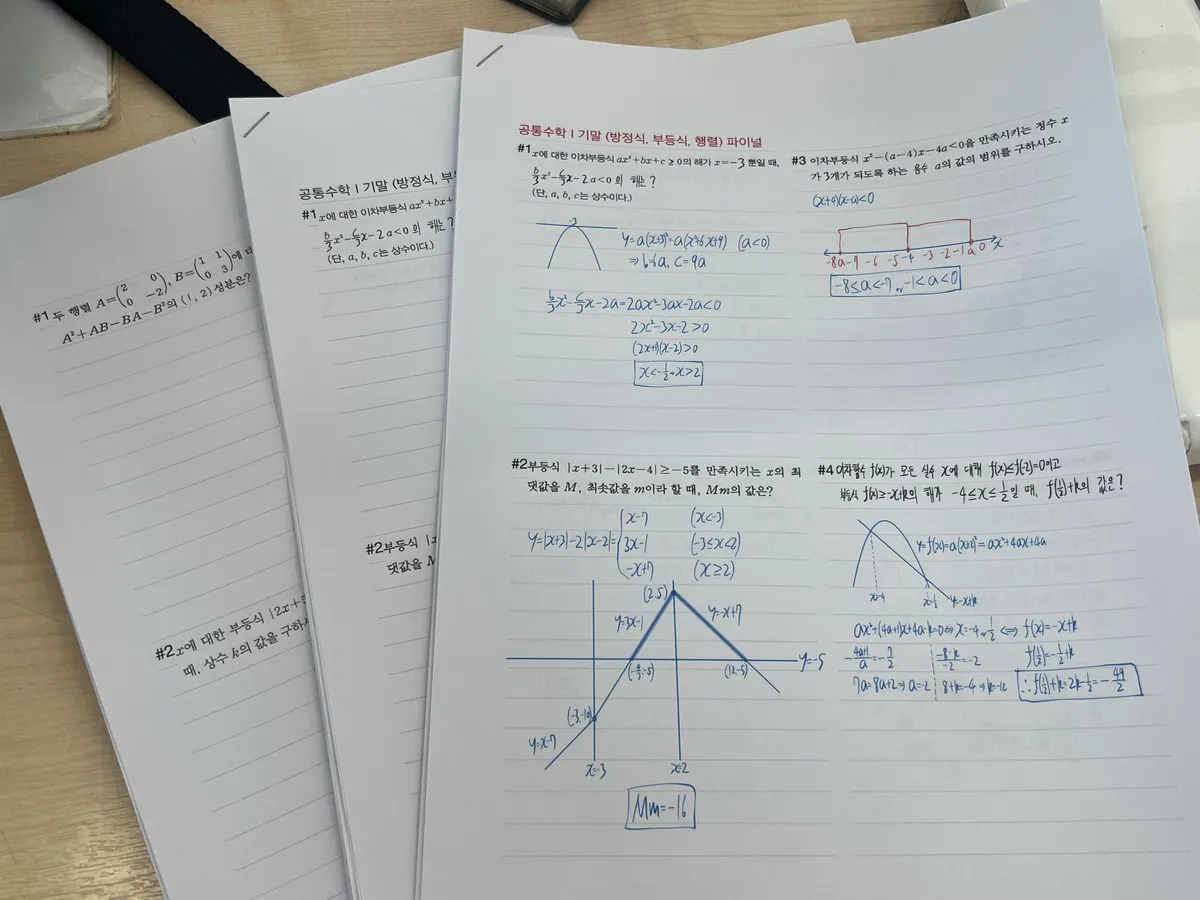 #1 두 행렬 A=(2 0 0 −2), B=(1 1 0 3)에
A²+AB−BA−B²의 (1, 2) 성분은?
#2 x에 대한 부등식 |2x+
때, 상수 k의 값을 구하
공통수학 I 기말 (방정식, 부
#1 x에 대한 이차부등식 ax²+bx+
b/3x²−c/3x−2a<0의 해는?
(단, a, b, c는 상수이다.)
#2부등식 |x
댓값을 M
공통수학 I 기말 (방정식, 부등식, 행렬) 파이널
#1 x에 대한 이차부등식 ax²+bx+c≥0의 해가 x=−3 뿐일 때,
b/3x²−c/3x−2a<0의 해는?
(단, a, b, c는 상수이다.)
-3
y=a(x+3)²=a(x²+6x+9) (a<0)
⇒ b=6a, c=9a
b/3x²−c/3x−2a=2ax²−3ax−2a<0
2x²−3x−2>0
(2x+1)(x−2)>0
x<−1/2 or x>2
#2부등식 |x+3|−|2x−4|≥−5를 만족시키는 x의 최
댓값을 M, 최솟값을 m이라 할 때, Mm의 값은?
x−7 (x<−3)
y=|x+3|−2|x−2|= 3x−1 (−3≤x<2)
−x+7 (x≥2)
(2,5)
y=3x−1 y=−x+7
y=−5
(−4/3,−5) (12,−5)
(−3,−10)
y=x−7
x=−3 x=2
Mm=−16
#3 이차부등식 x²−(a−4)x−4a<0을 만족시키는 정수 x
가 3개가 되도록 하는 음수 a의 값의 범위를 구하시오.
(x+4)(x−a)<0
-8 a -7 -6 -5 -4 -3 -2 -1 a 0 x
−8≤a<−7 or −1<a<0
#4 이차함수 f(x)가 모든 실수 x에 대해 f(x)≤f(−2)=0이고
부등식 f(x)≥−x+k의 해가 −4≤x≤1/2일 때, f(1/2)+k의 값은?
y=f(x)=a(x+2)²=ax²+4ax+4a
x=−4 x=1/2 y=−x+k
ax²+(4a+1)x+4a−k=0 ⇔ x=−4 or 1/2 ⇔ f(x)=−x+k
−(4a+1)/a=−7/2 (−8−k)/−2=−2 f(1/2)=−1/2+k
7a=8a+2 ⇒ a=−2 8+k=−4 ⇒ k=−12 ∴ f(1/2)+k=2k−1/2=−49/2